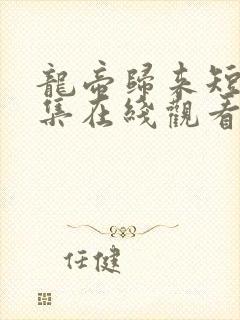 龍帝歸來短
集在綫觀看
任健